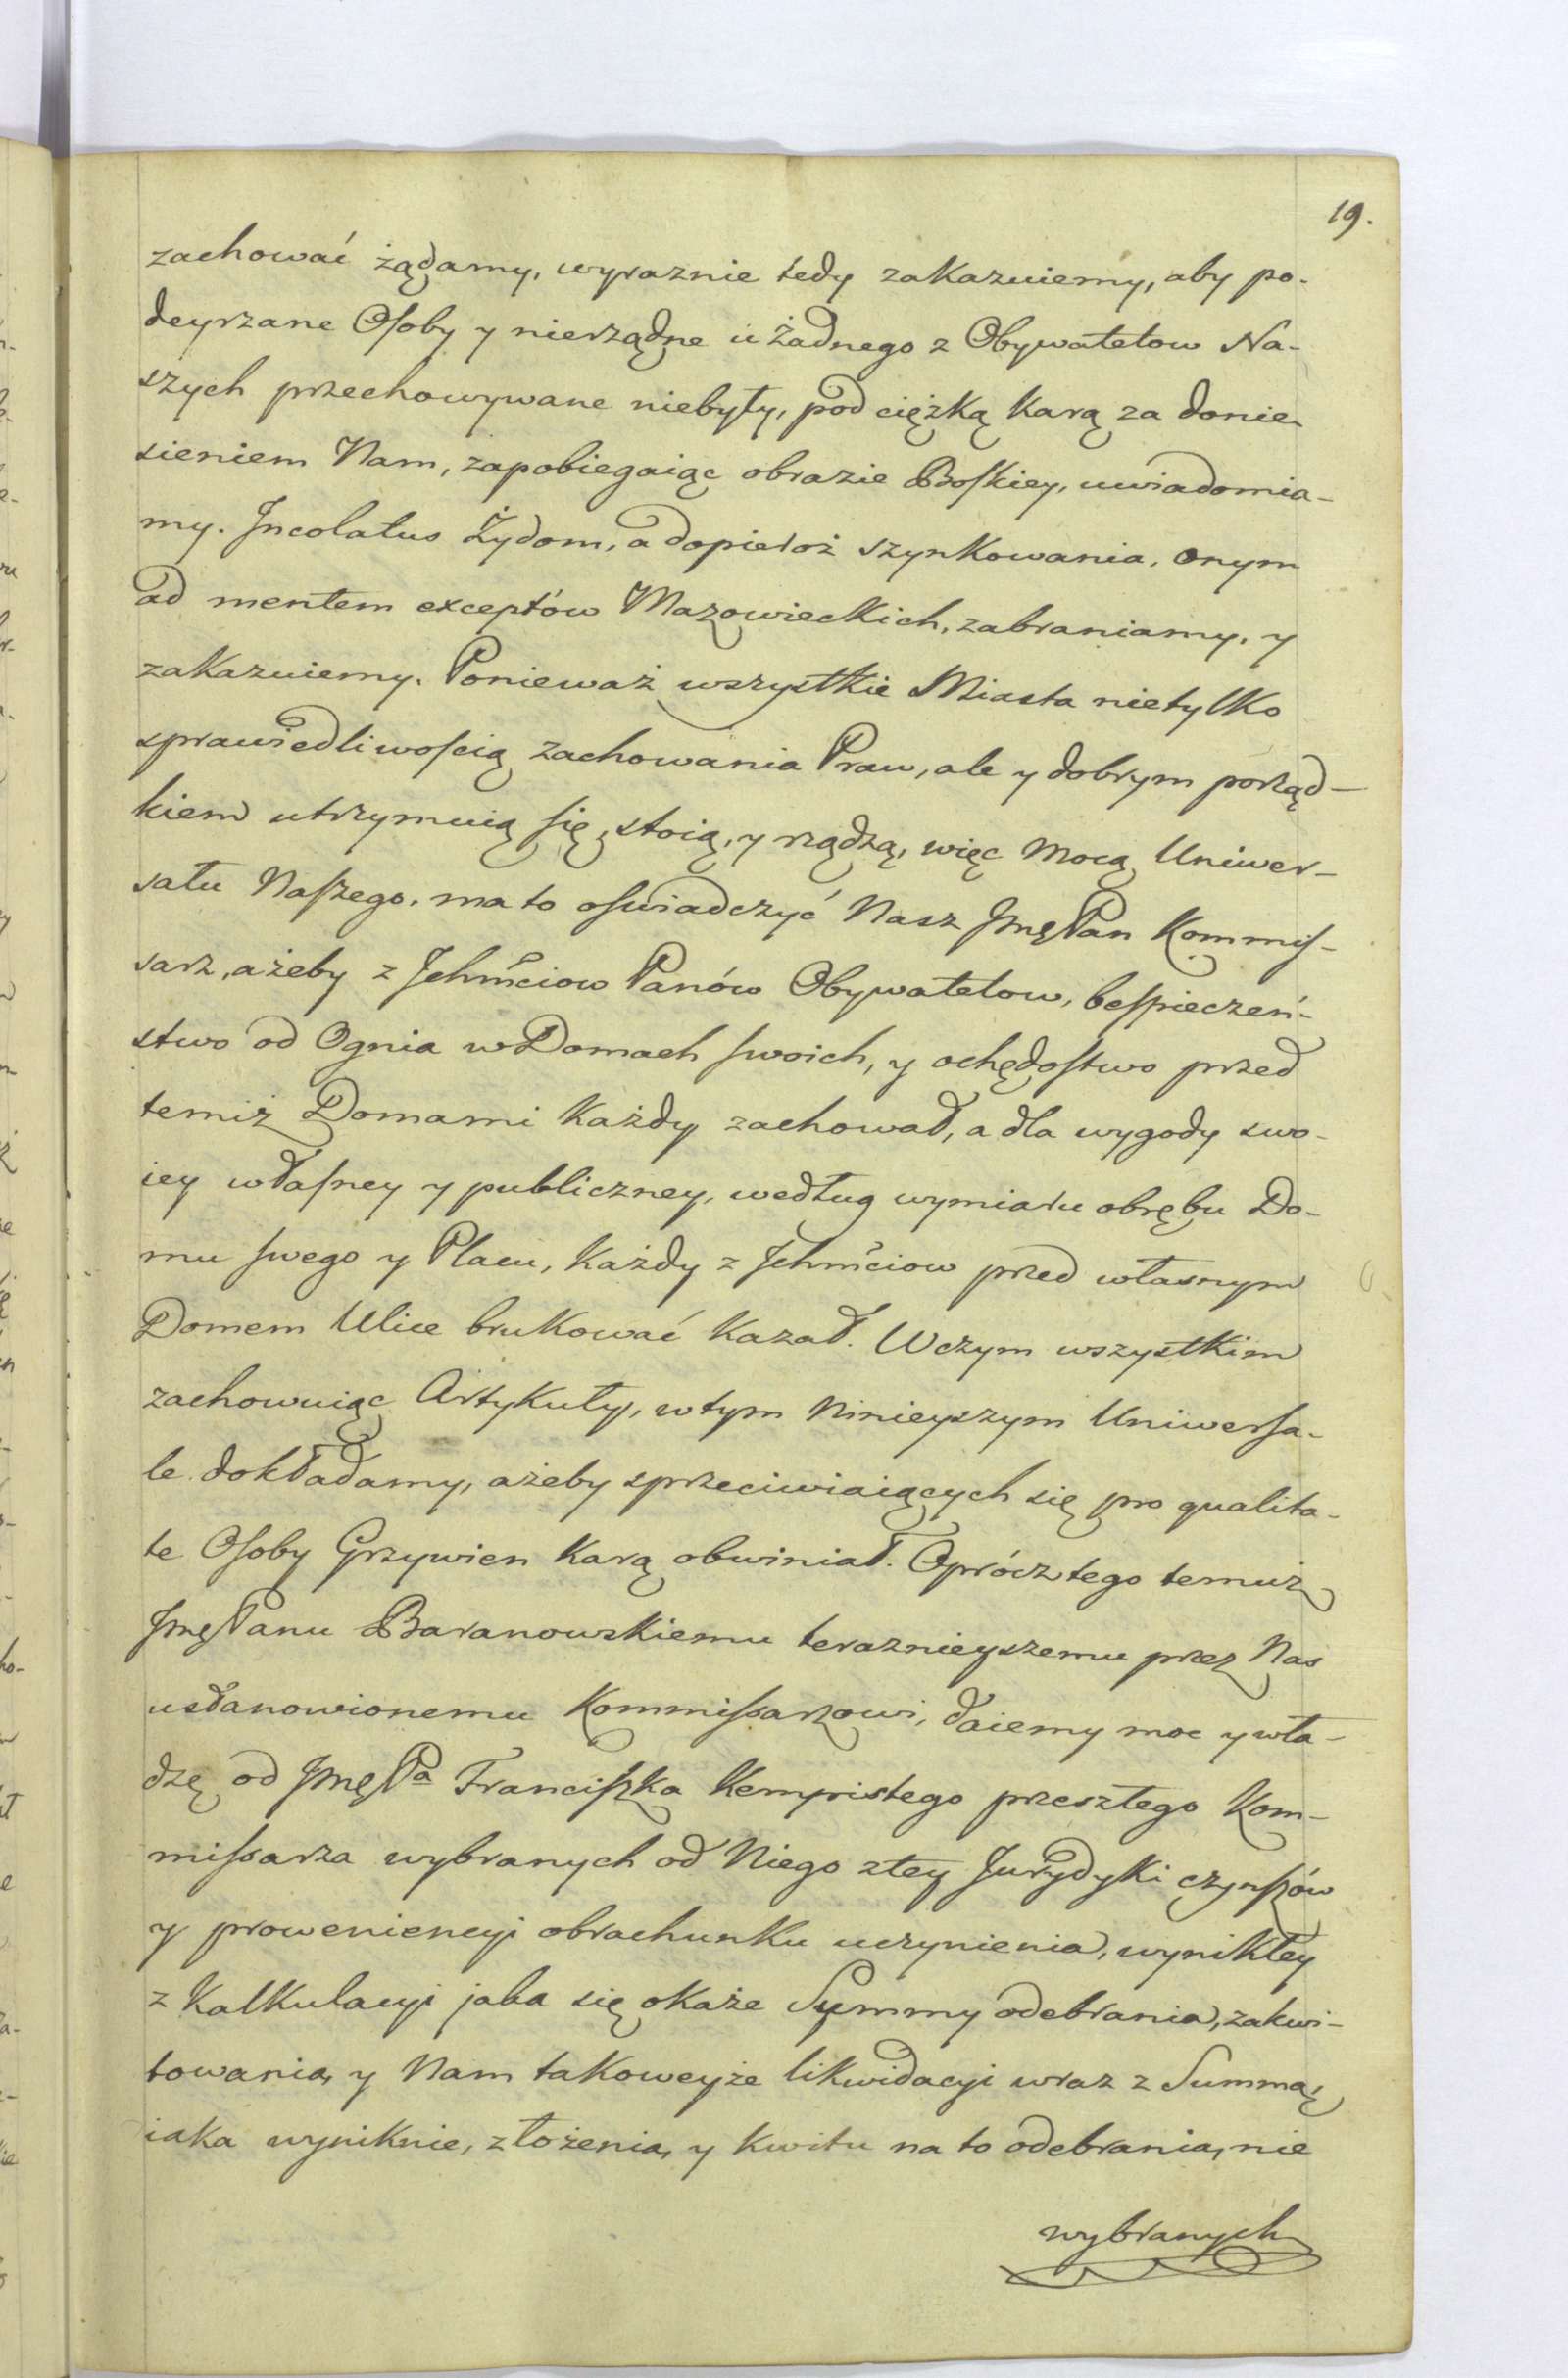 19.
zachować żądamy, wyraznie tedy zakazuiemy, aby po-
deyrzane Osoby y nierządne u żadnego z Obywatelow Na-
szych przechowywane niebyły, pod ciężką karą za donie-
sieniem Nam, zapobiegaiąc obrazie Boskiey, uwiadomia-
my. Incolatus Żydom, a dopieroż szynkowania, onym
ad mentem exceptów Mazowieckich, zabraniamy, y
zakazuiemy. Ponieważ wszystkie Miasta nietylko
sprawiedliwością zachowania Praw, ale y dobrym porząd-
kiem utrzymuią się, stoią, y rządzą, więc mocą Uniwer-
sału Naszego, ma to oswiadczyć Nasz Jmę Pan Kommis-
sarz, ażeby z Jchmciow Panów Obywatelow, bespieczeń-
stwo od Ognia w Domach swoich, y ochędostwo przed
temiż Domami każdy zachował, a dla wygody swo-
iey własney y publiczney, według wymiaru obrębu Do-
mu swego y Placu, każdy z Jchmciow przed własnym
Domem Ulice brukować kazał. W czym wszystkim
zachowuiąc Artykuły, w tym ninieyszym Uniwersa-
le dokładamy, ażeby sprzeciwiaiących się pro qualita-
te Osoby Grzywien karą obwiniał. Oprócz tego temuż
Jmę Panu Baranowskiemu teraznieyszemu przez Nas
ustanowionemu Kommissarzowi, daiemy moc y wła-
dzę od Jmę Pa Franciszka Kempistego przeszłego Kom-
missarza wybranych od Niego z tey Jurydyki czynszów
y proweniencyi obrachunku uczynienia, wynikłey
z kalkulacyi jaka się okaże Summy odebrania, zakwi-
towania, y Nam takoweyże likwidacyi wraz z Summą,
iaka wyniknie, złożenia, y kwitu na to odebrania, nie
wybranych